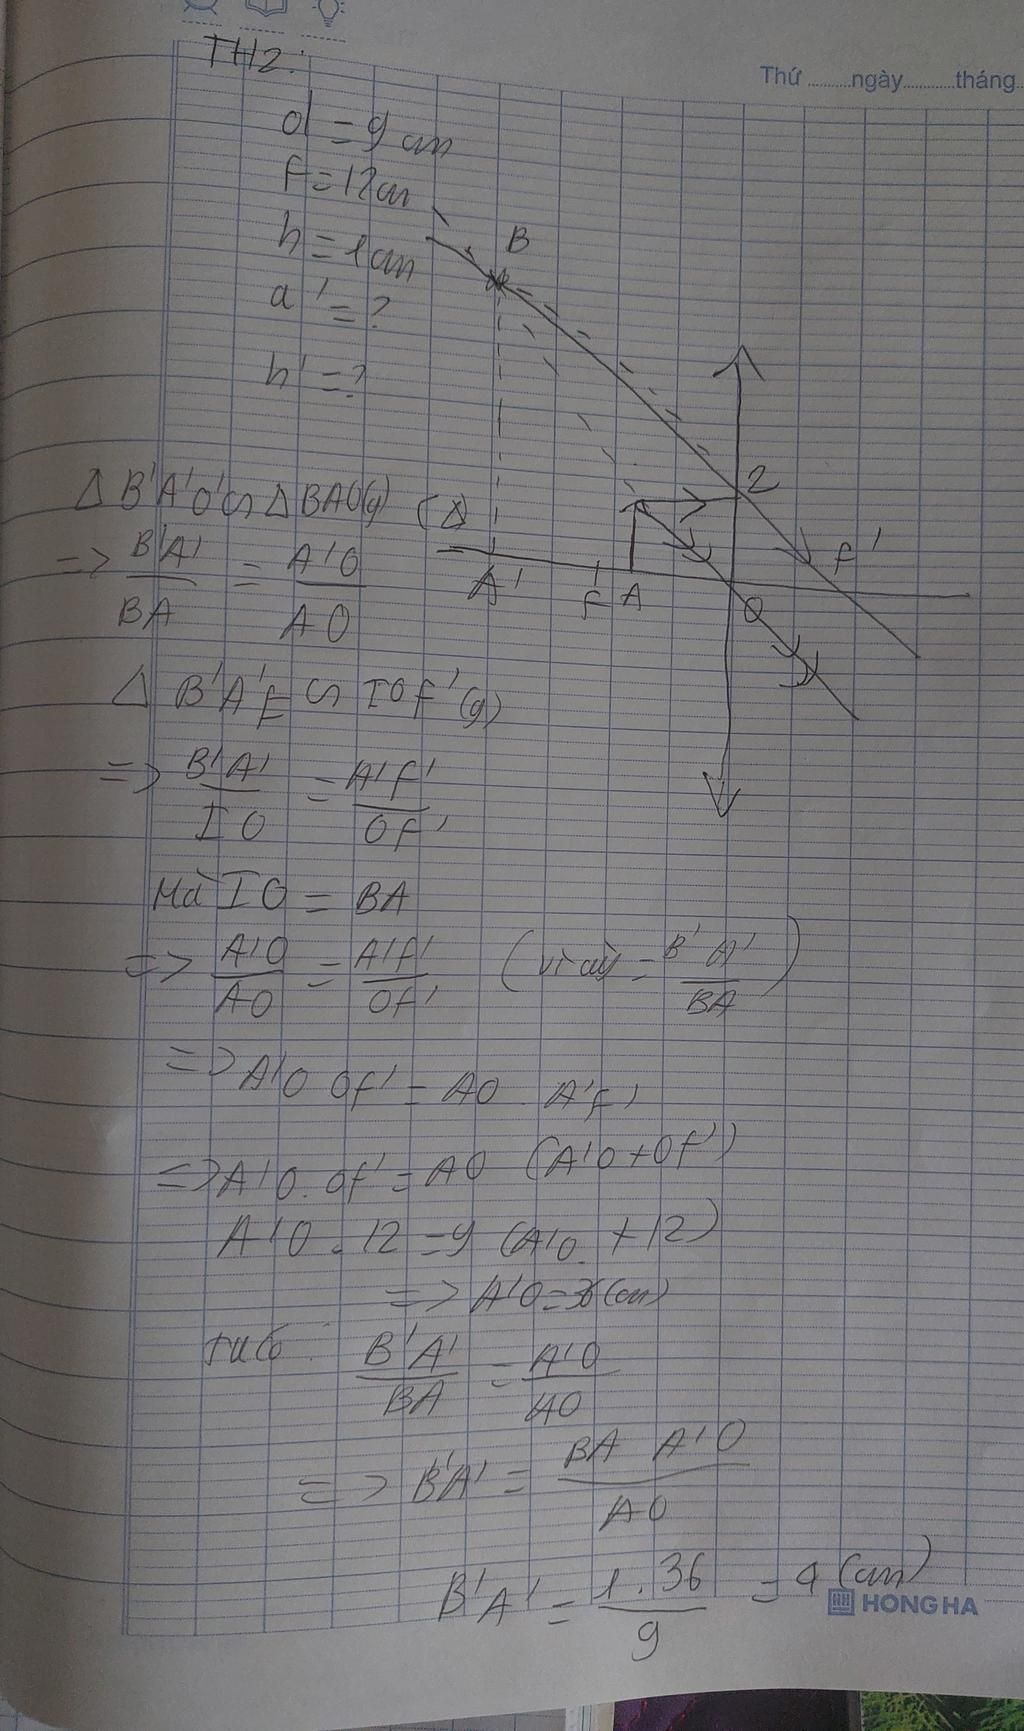 Thứ ........ngày...........tháng...
TH2:
d = 9 cm
f = 12cm
h = 1cm
d' = ?
h' = ?
B
I
F'
(Δ)
A'
F A
O
Δ B'A'O ∽ Δ BAO(g)
=> B'A'/BA = A'O/AO
Δ B'A'F' ∽ IOF'(g)
=> B'A'/IO = A'F'/OF'
Mà IO = BA
=> A'O/AO = A'F'/OF' (vì cùng = B'A'/BA)
=> A'O.OF' = AO . A'F'
=> A'O.OF' = AO (A'O+OF')
A'O . 12 = 9 (A'O + 12)
=> A'O = 36(cm)
Ta có: B'A'/BA = A'O/AO
=> B'A' = BA A'O/AO
B'A' = 1.36/9 = 4 (cm)
HONG HA